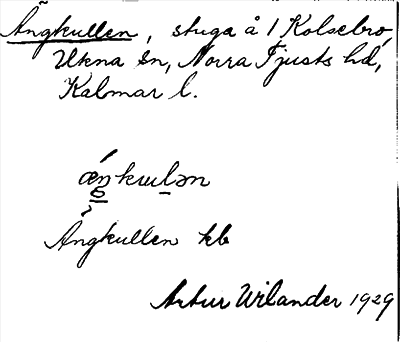 Ängkullen, stuga å 1 Kolsebro,
Ukna sn, Norra Tjusts hd,
Kalmar l.
Ängkullen kb
Artur Wilander 1929